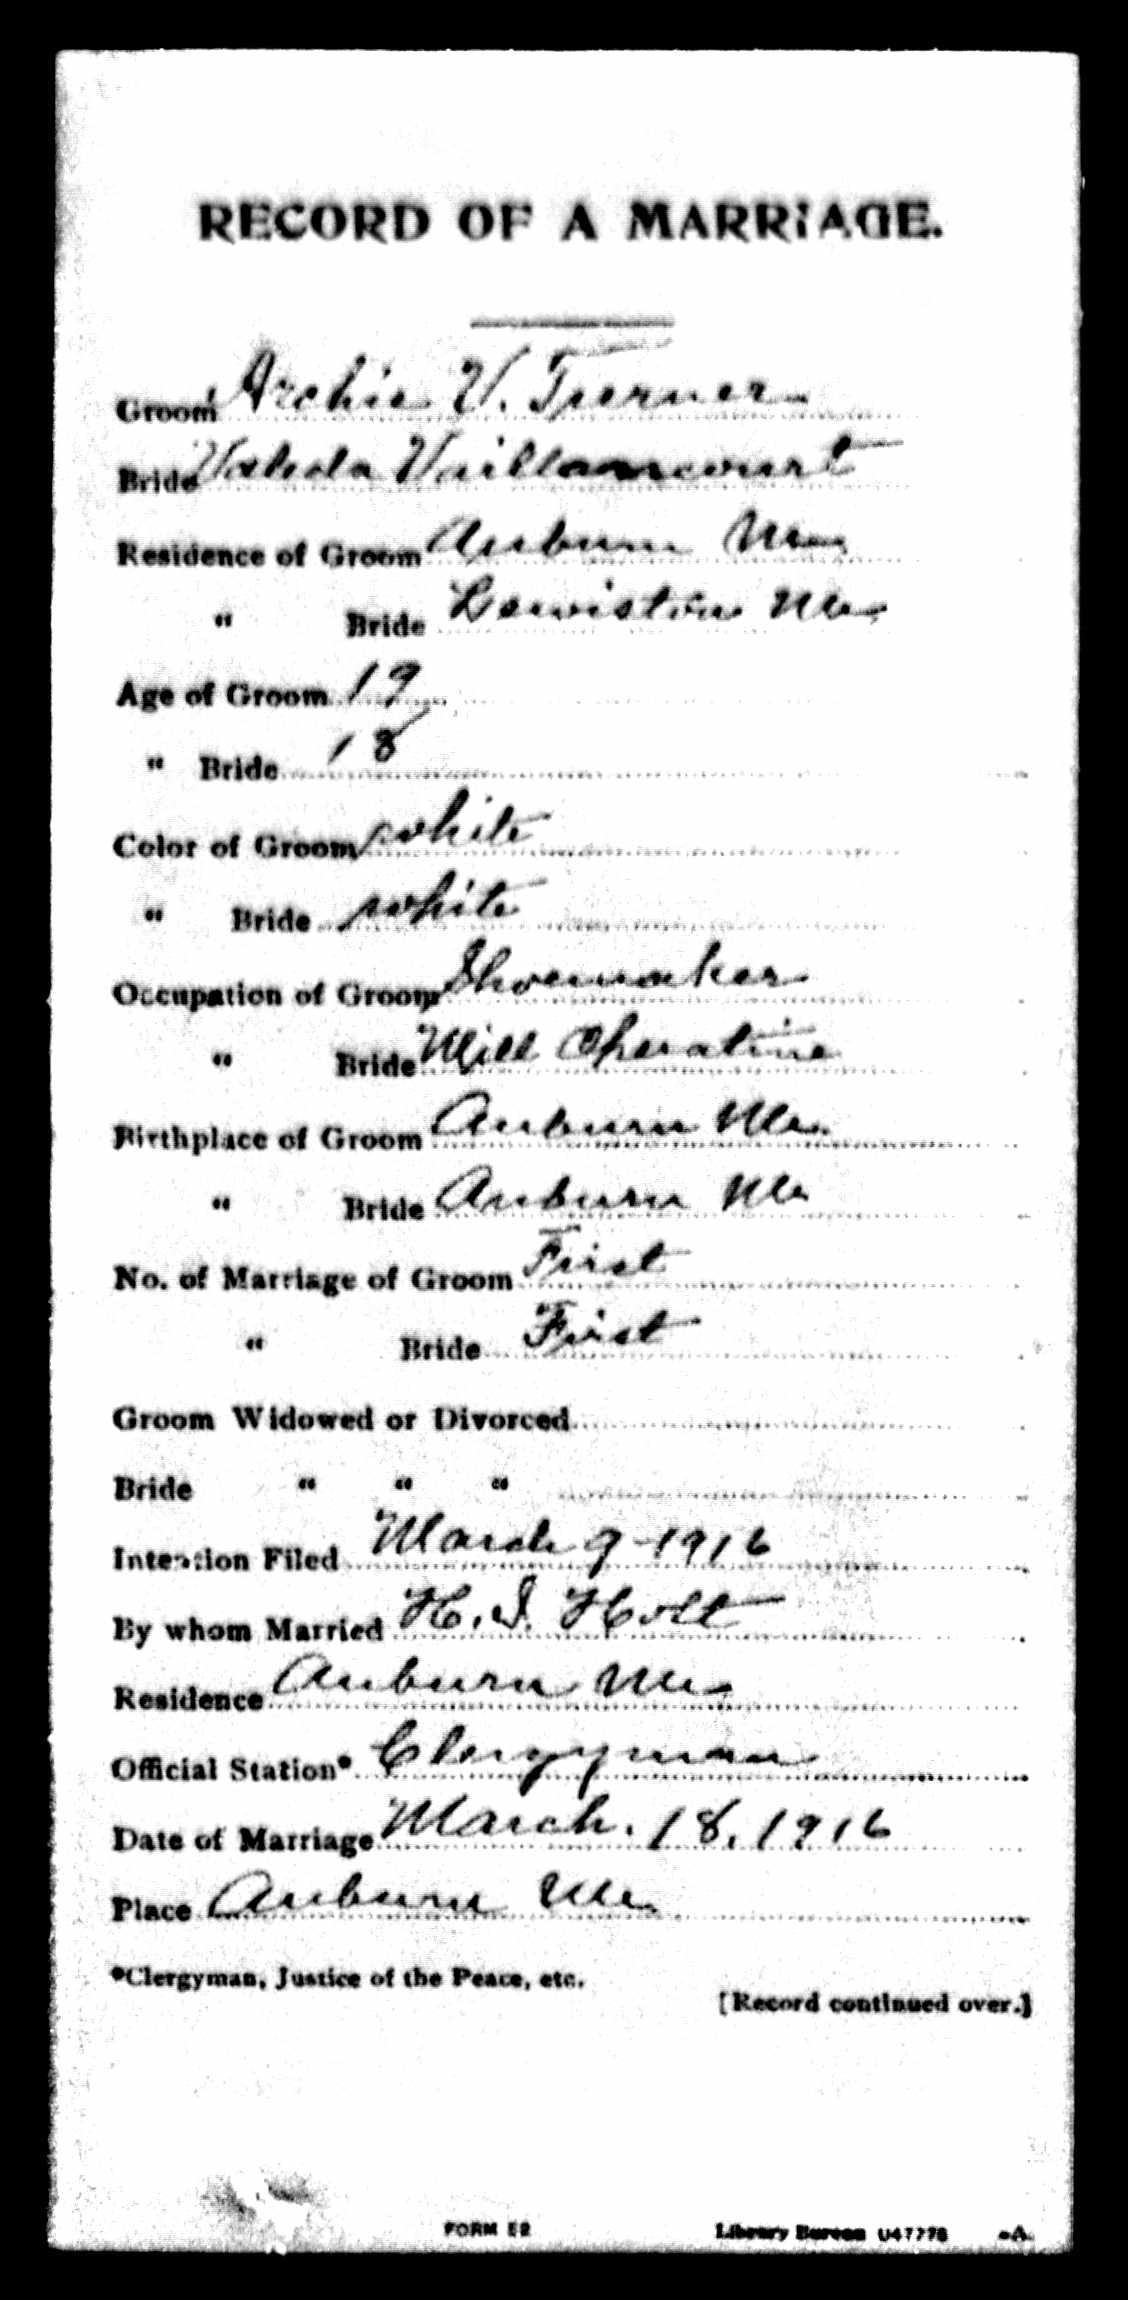 RECORD OF A MARRIAGE.
Groom Archie V. Turner
Bride Vaillancourt
Residence of Groom Auburn Me
" Bride Lewiston Me
Age of Groom 19
" Bride 18
Color of Groom white
" Bride white
Occupation of Groom Shoemaker
" Bride Mill Operative
Birthplace of Groom Auburn Me.
" Bride Auburn Me
No. of Marriage of Groom First
" Bride First
Groom Widowed or Divorced
Bride " " "
Intention Filed March 9 - 1916
By whom Married H. I. Holt
Residence Auburn Me
Official Station* Clergyman
Date of Marriage March. 18, 1916
Place Auburn Me
*Clergyman, Justice of the Peace, etc.
[Record continued over.]
FORM Library Bureau